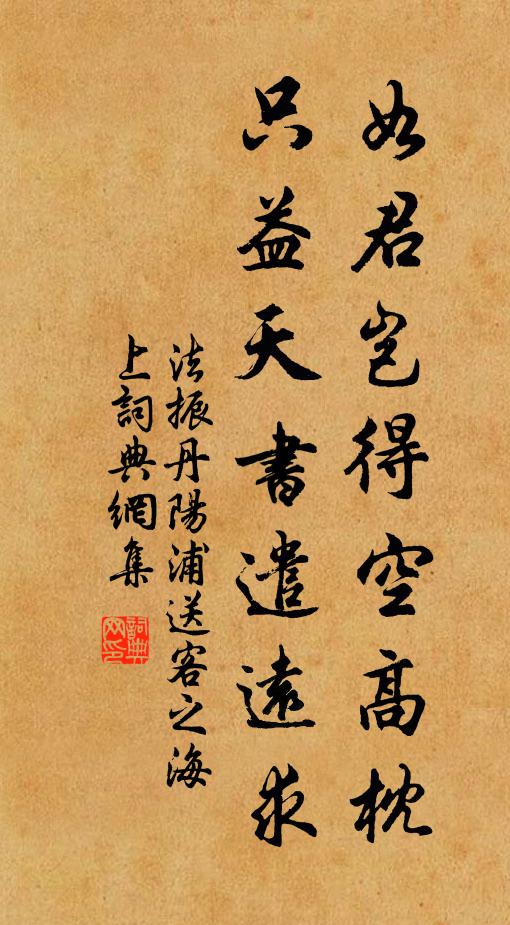 如君豈得空高枕
只益天書遣遠求
法振丹陽浦送客之海
上詞典網集
詞典網印